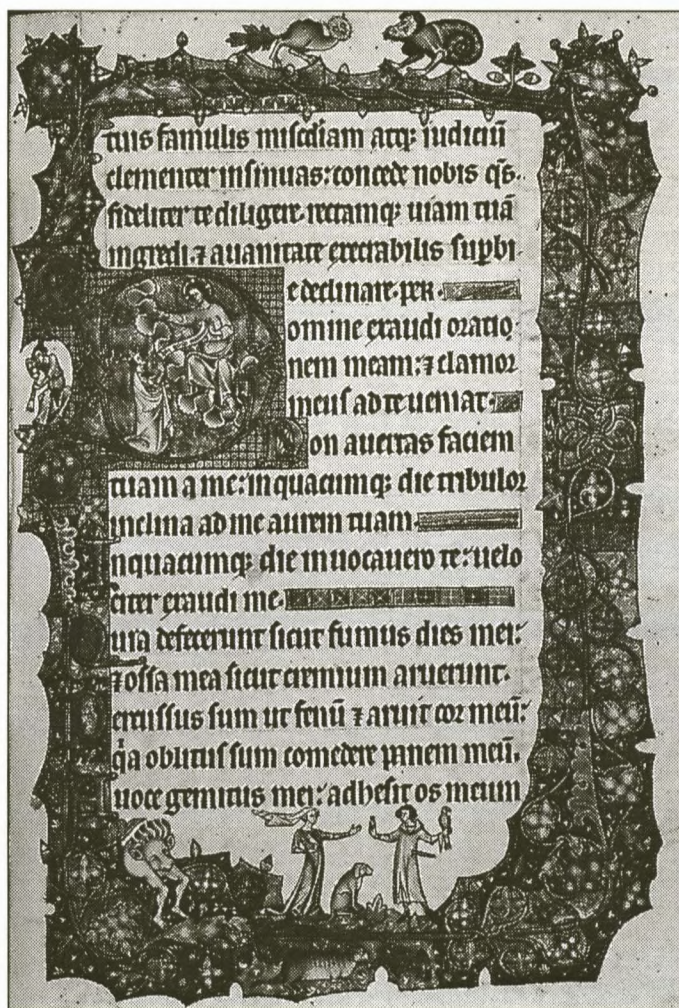 tuis famulis mis̅c̅diam atq; judiciū
clementer insinuas: concede nobis q̅s.
fideliter te diligere. rectamq; uiam tuā
ingredi. ⁊ a uanitate execrabilis sup̱bi
e declinare. per
omine exaudi oratio
nem meam: ⁊ clamor
meus ad te ueniat.
on auertas faciem
tuam a me: in quacumq; die tribulor
inclina ad me aurem tuam.
nquacumq; die inuocauero te: uelo
citer exaudi me.
uia defecerunt sicut fumus dies mei:
⁊ ossa mea sicut cremium aruerunt.
ercussus sum ut fenū ⁊ aruit cor meū:
q̇a oblitus sum comedere panem meū.
uoce gemitus mei: adhesit os meum